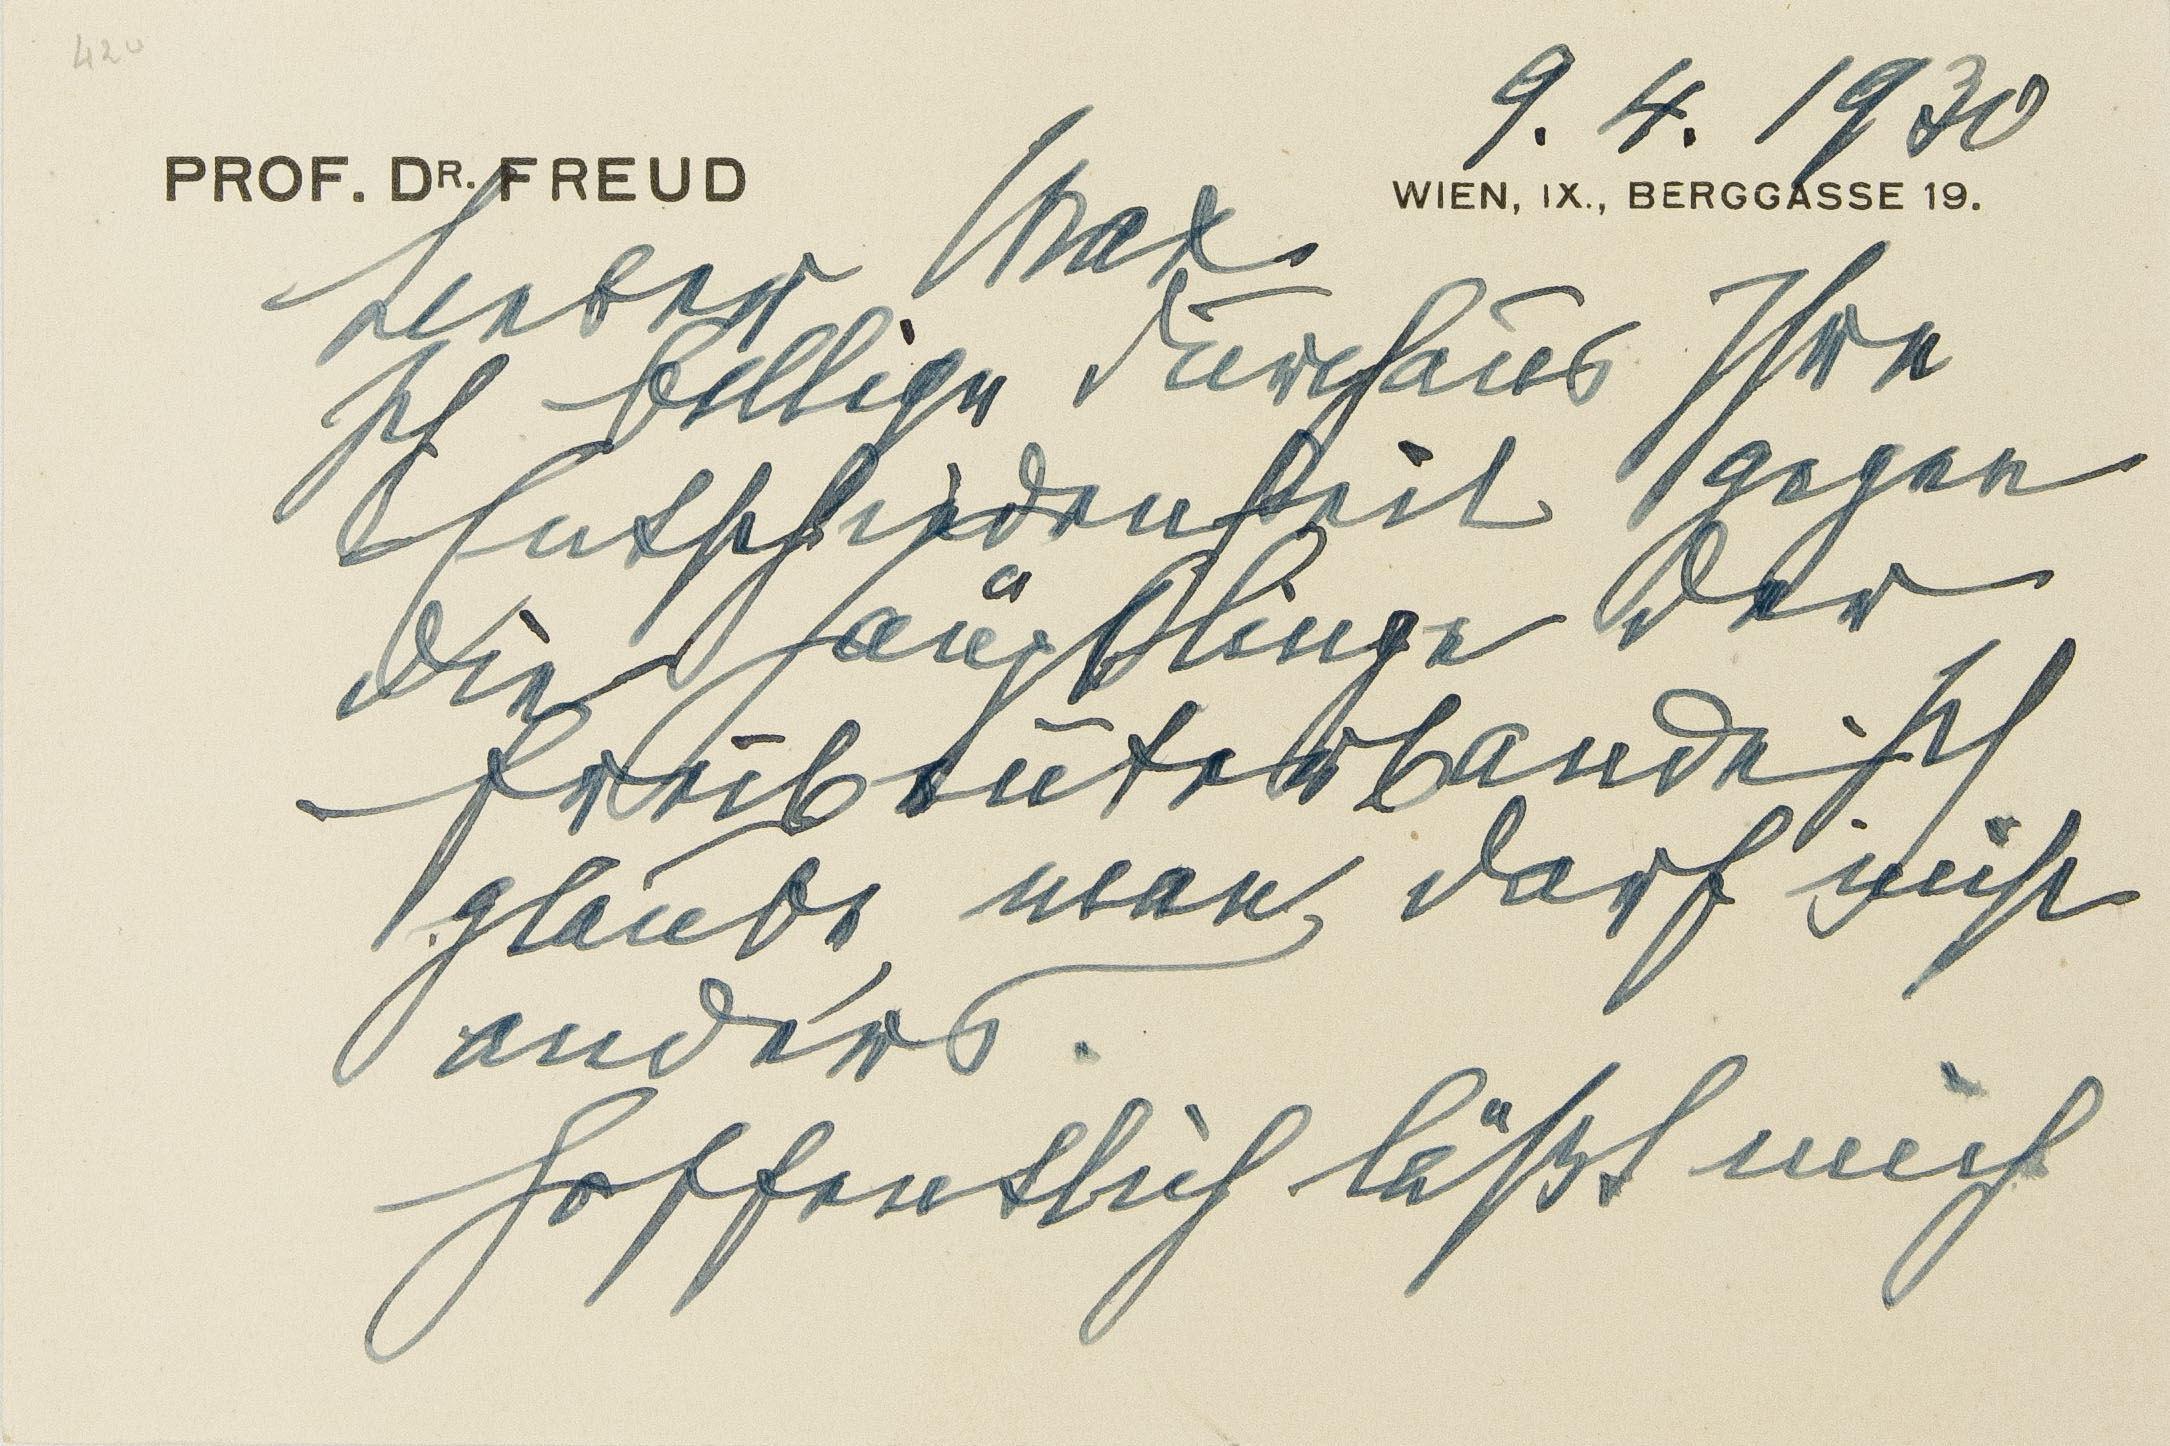 420
9. 4. 1930
PROF. DR. FREUD
WIEN, IX., BERGGASSE 19.
Lieber Max.
Ich billige durchaus Ihre
Entschiedenheit gegen
die Häuptlinge der
Freibeuterbande ich
glaube, man darf nicht
anders.
Hoffentlich läßt mich